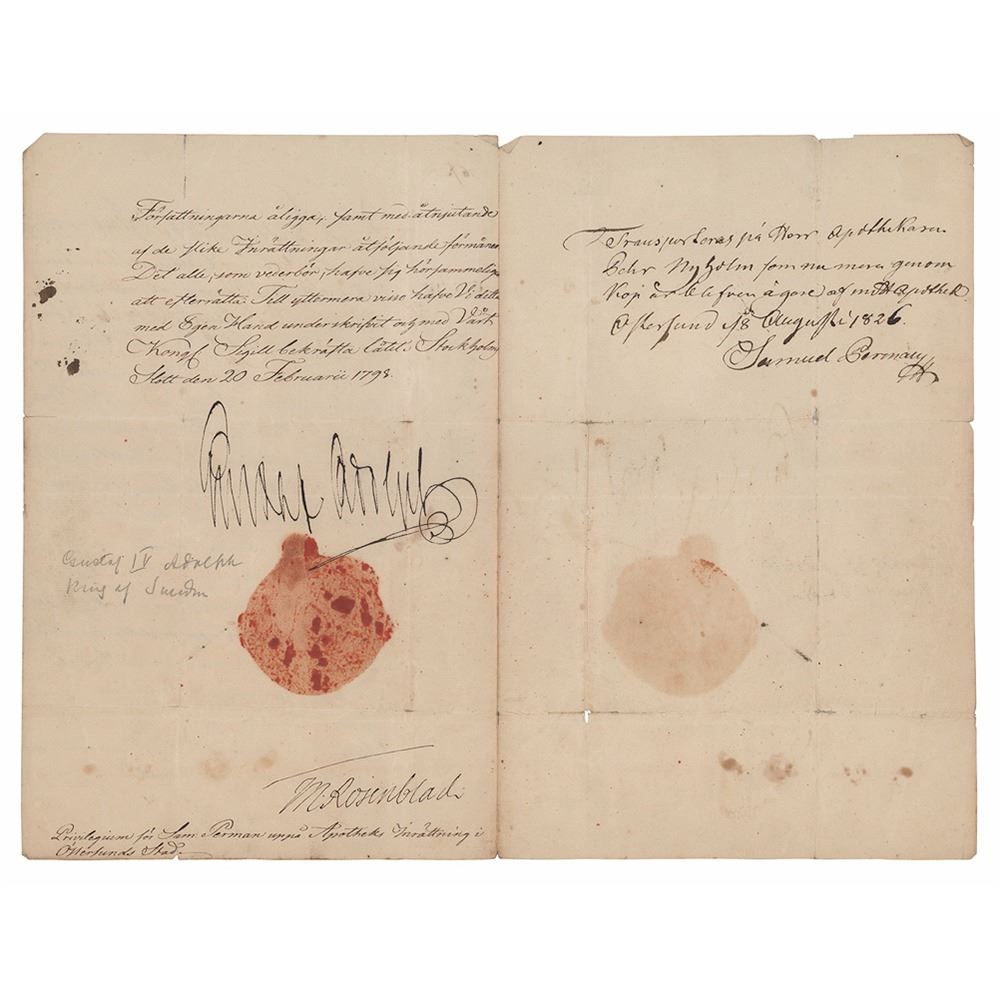 Författningarna åligga, samt med åtnjutande
af de slike Inrättningar åtföljande förmåner.
Det alle, som vederbör, hafve sig hörsammeligen
att efterrätta. Till yttermera visso hafve Vi detta
med Egen Hand underskrifvit och med Vårt
Kongl Sigill bekräfta låtit. Stockholms
Slott den 20 Februarii 1798.
Gustaf Adolph
Gustaf IV Adolph
King of Sweden
M. Rosenblad.
Privilegium för Sam. Perman uppå Apotheks Inrättning i
Östersunds Stad.
Transporteras på Herr Apothekaren
Pehr Nyholm som nu mera genom
Kop är blefven ägare af mitt Apothek
Östersund d 18 Augusti 1826.
Samuel Perman